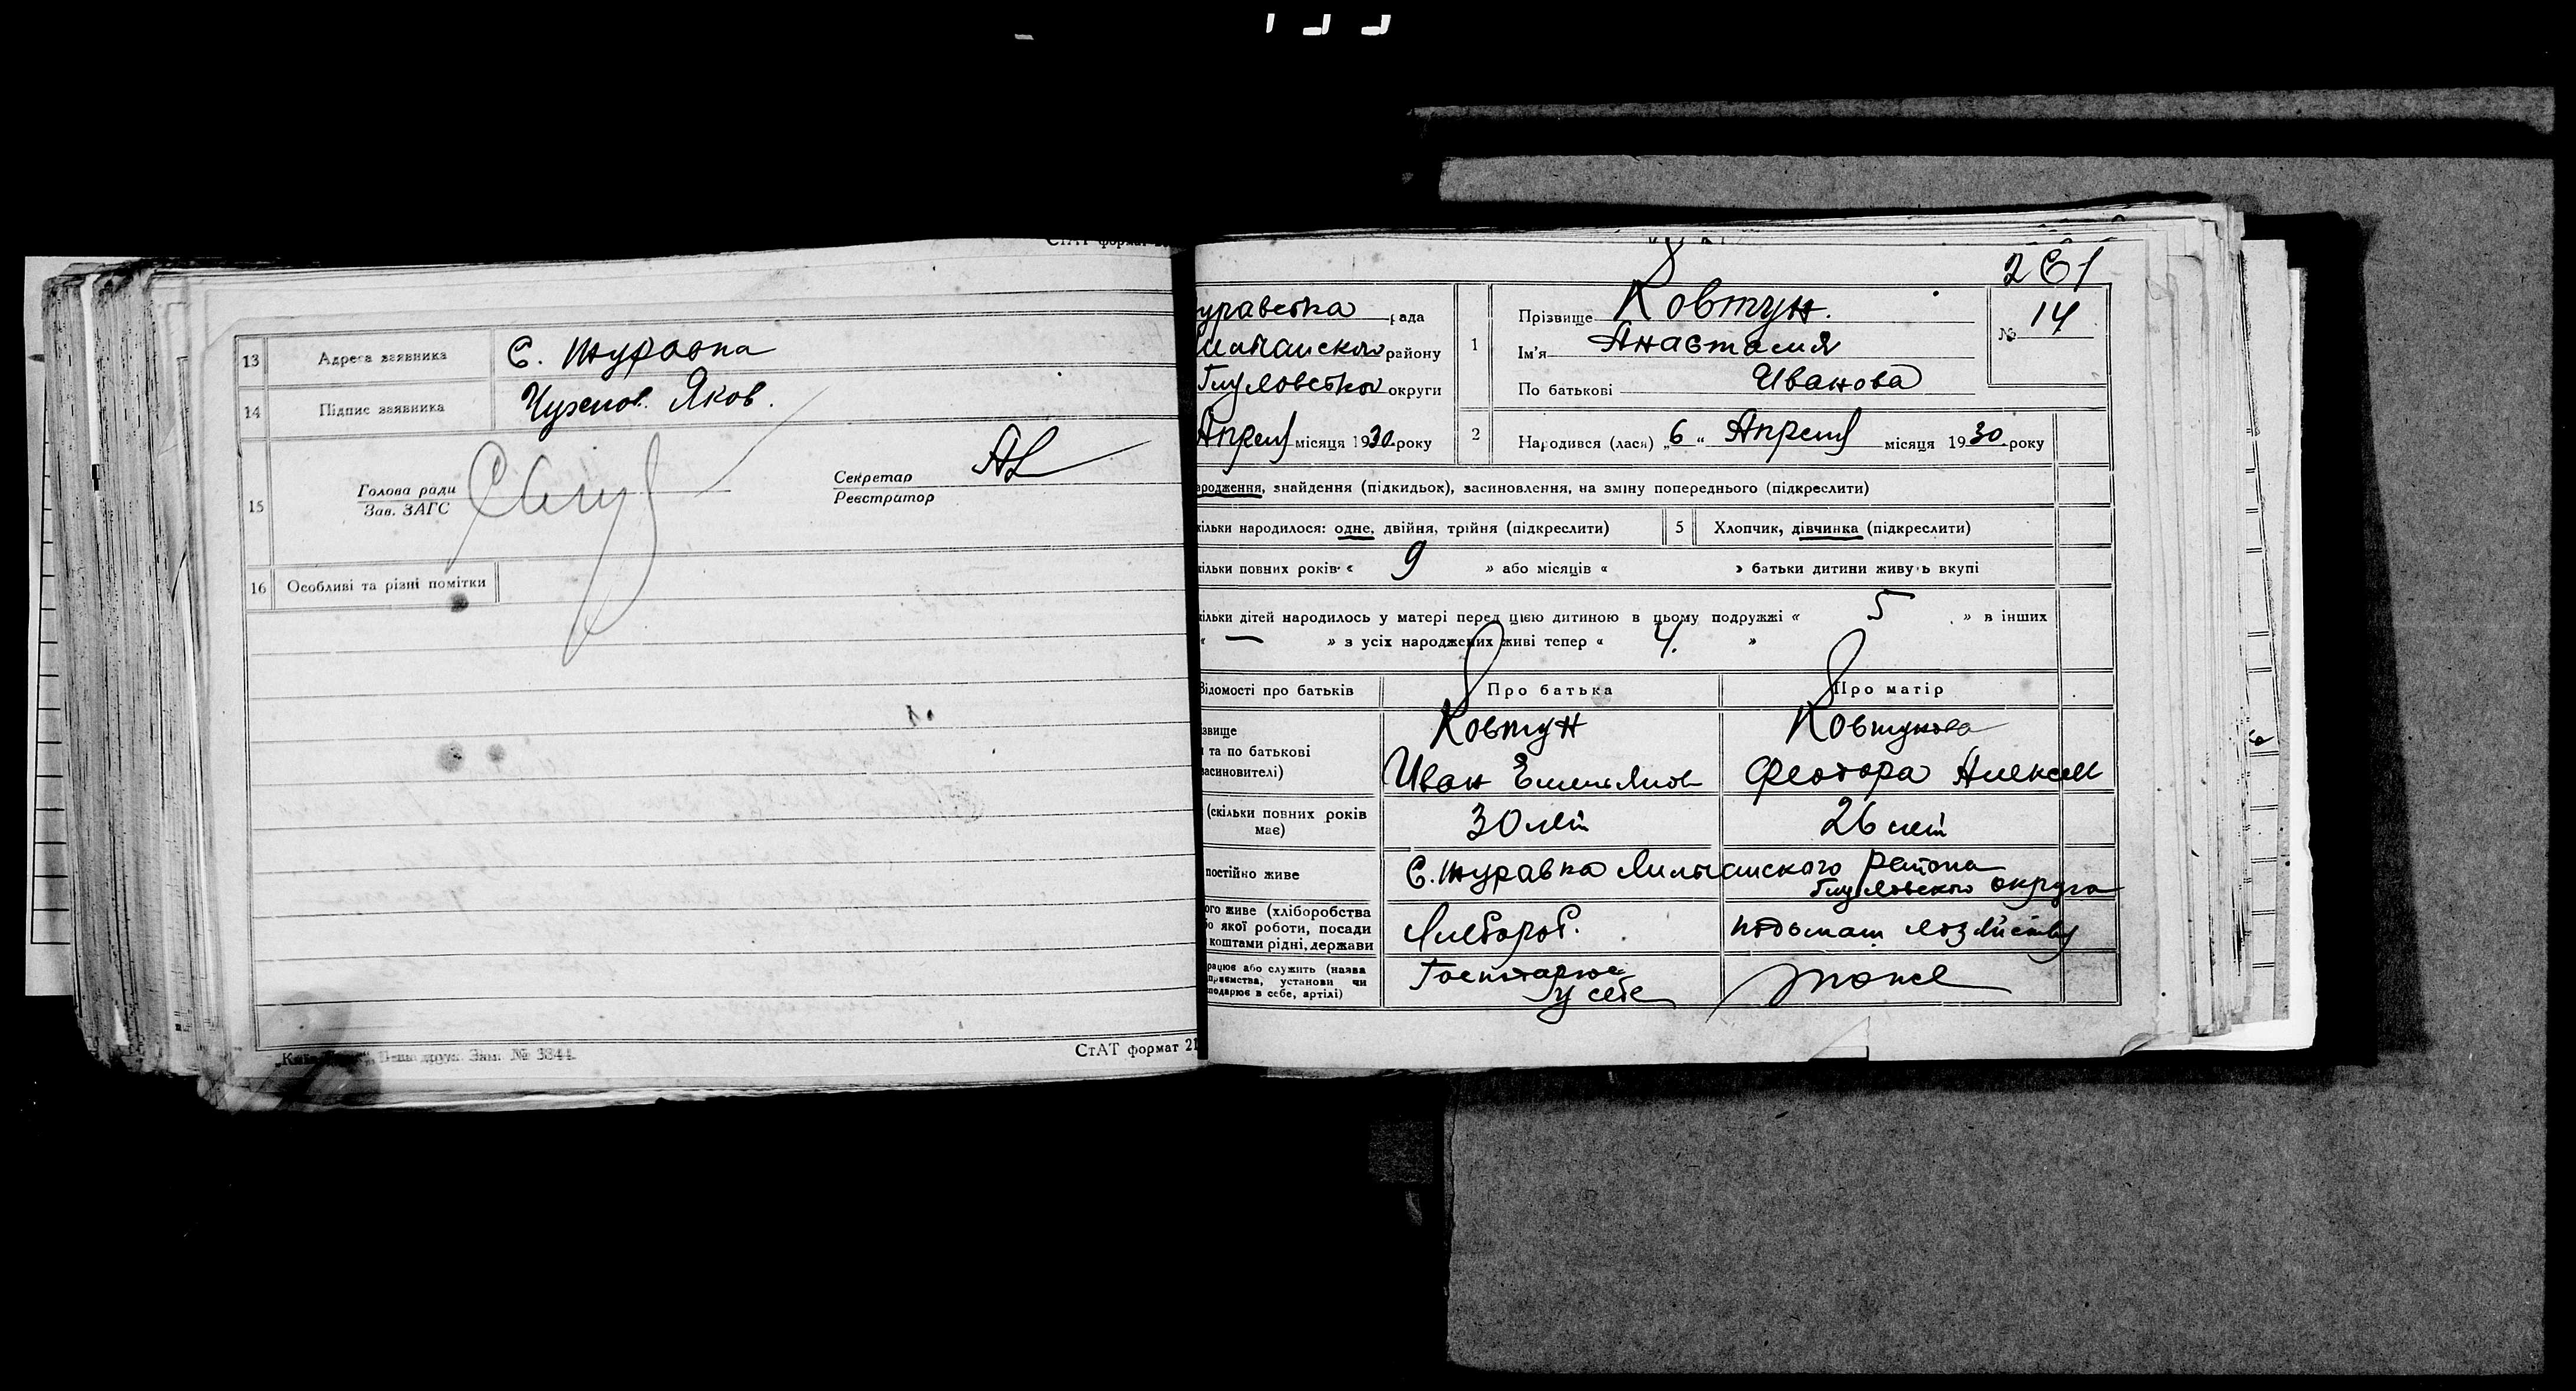 СтАТ формат
13 Адреса заявника С. Журавка
14 Підпис заявника Яков.
15 Голова ради
Зав. ЗАГС
Секретар
Реєстратор
16 Особливі та різні помітки
друк. Зам. № 3844.
СтАТ формат 21
261
уравська рада
району
округи
Апреля місяця 1930 року
1 Прізвище Ковтун.
Ім'я Анастасия
По батькові Иванова
№ 14
2 Народився (лася) „6“ Апреля місяця 1930 року
ародження, знайдення (підкидьок), засиновлення, на зміну попереднього (підкреслити)
кільки народилося: одне, двійня, трійня (підкреслити)
5 Хлопчик, дівчинка (підкреслити)
кільки повних років « 9 » або місяців « » батьки дитини живуть вкупі
кільки дітей народилось у матері перед цією дитиною в цьому подружжі « 5 » в інших
« — » з усіх народжених живі тепер « 4. »
Відомості про батьків Про батька Про матір
звище
та по батькові
засиновителі)
Ковтун
Иван Емельянов
Ковтунова
Феодора Алексеев
(скільки повних років
має)
30 лет
26 лет
постійно живе С. Журавка района
Глуховского округа
ого живе (хліборобства
бо якої роботи, посади
коштами рідні, держави
Хлебороб.
рацює або служить (назва
приємства, установи чи
сподарює в себе, артілі)
Господарює
у себе
тоже